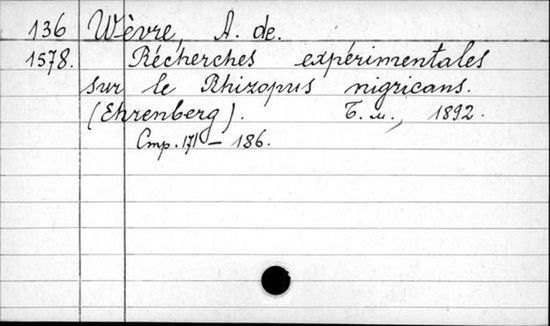 136 Wèvre, A. de.
1578. Récherches expérimentales
sur le Rhizopus nigricans.
(Ehrenberg). Б. м., 1892.
Стр. 171 – 186.